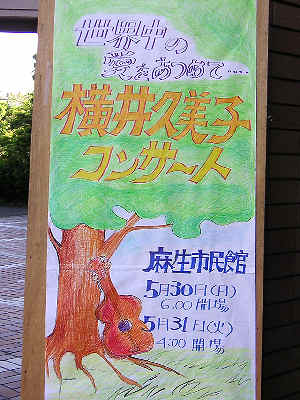 世界中の
愛をあつめて……
横井久美子
コンサート
麻生市民館
5月30日(月)
6:00 開場
5月31日(火)
4:00 開場